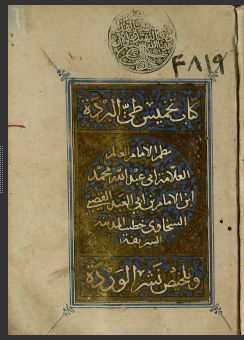 ٤٨١٩
كتاب تخميس طي البردة
الامام العالم
العلامة ابي عبد الله محمد
ابن الامام بن ابي العبد القصي
السخاوي خطيب المدينة
الشريفة
وتلخيص نشر الوردة